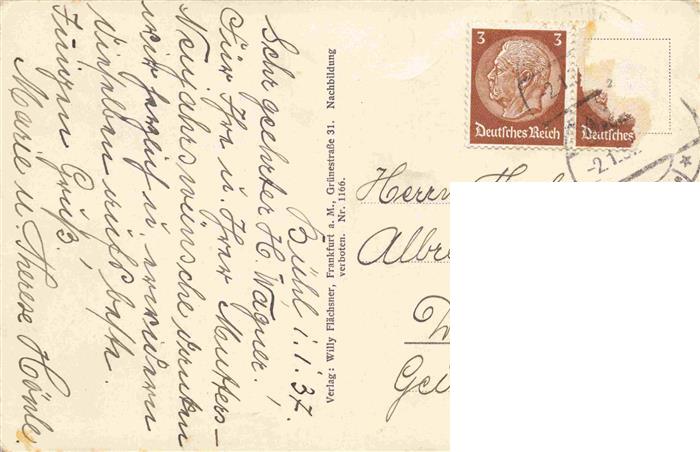 Bühl, 1.1.37.
Sehr geehrter H. Wagner!
Für Ihre u. Ihrer Mutters-
Neujahrswünsche danken
wir herzlich u. erwidern
dieselben aufs beste.
Innigen Gruß!
Marie u. Therese
Verlag: Willy Flächsner, Frankfurt a. M., Grünestraße 31. Nachbildung
verboten. Nr. 1166.
3
Deutsches Reich
Deutsches
-2.1.3
Herrn
Albre